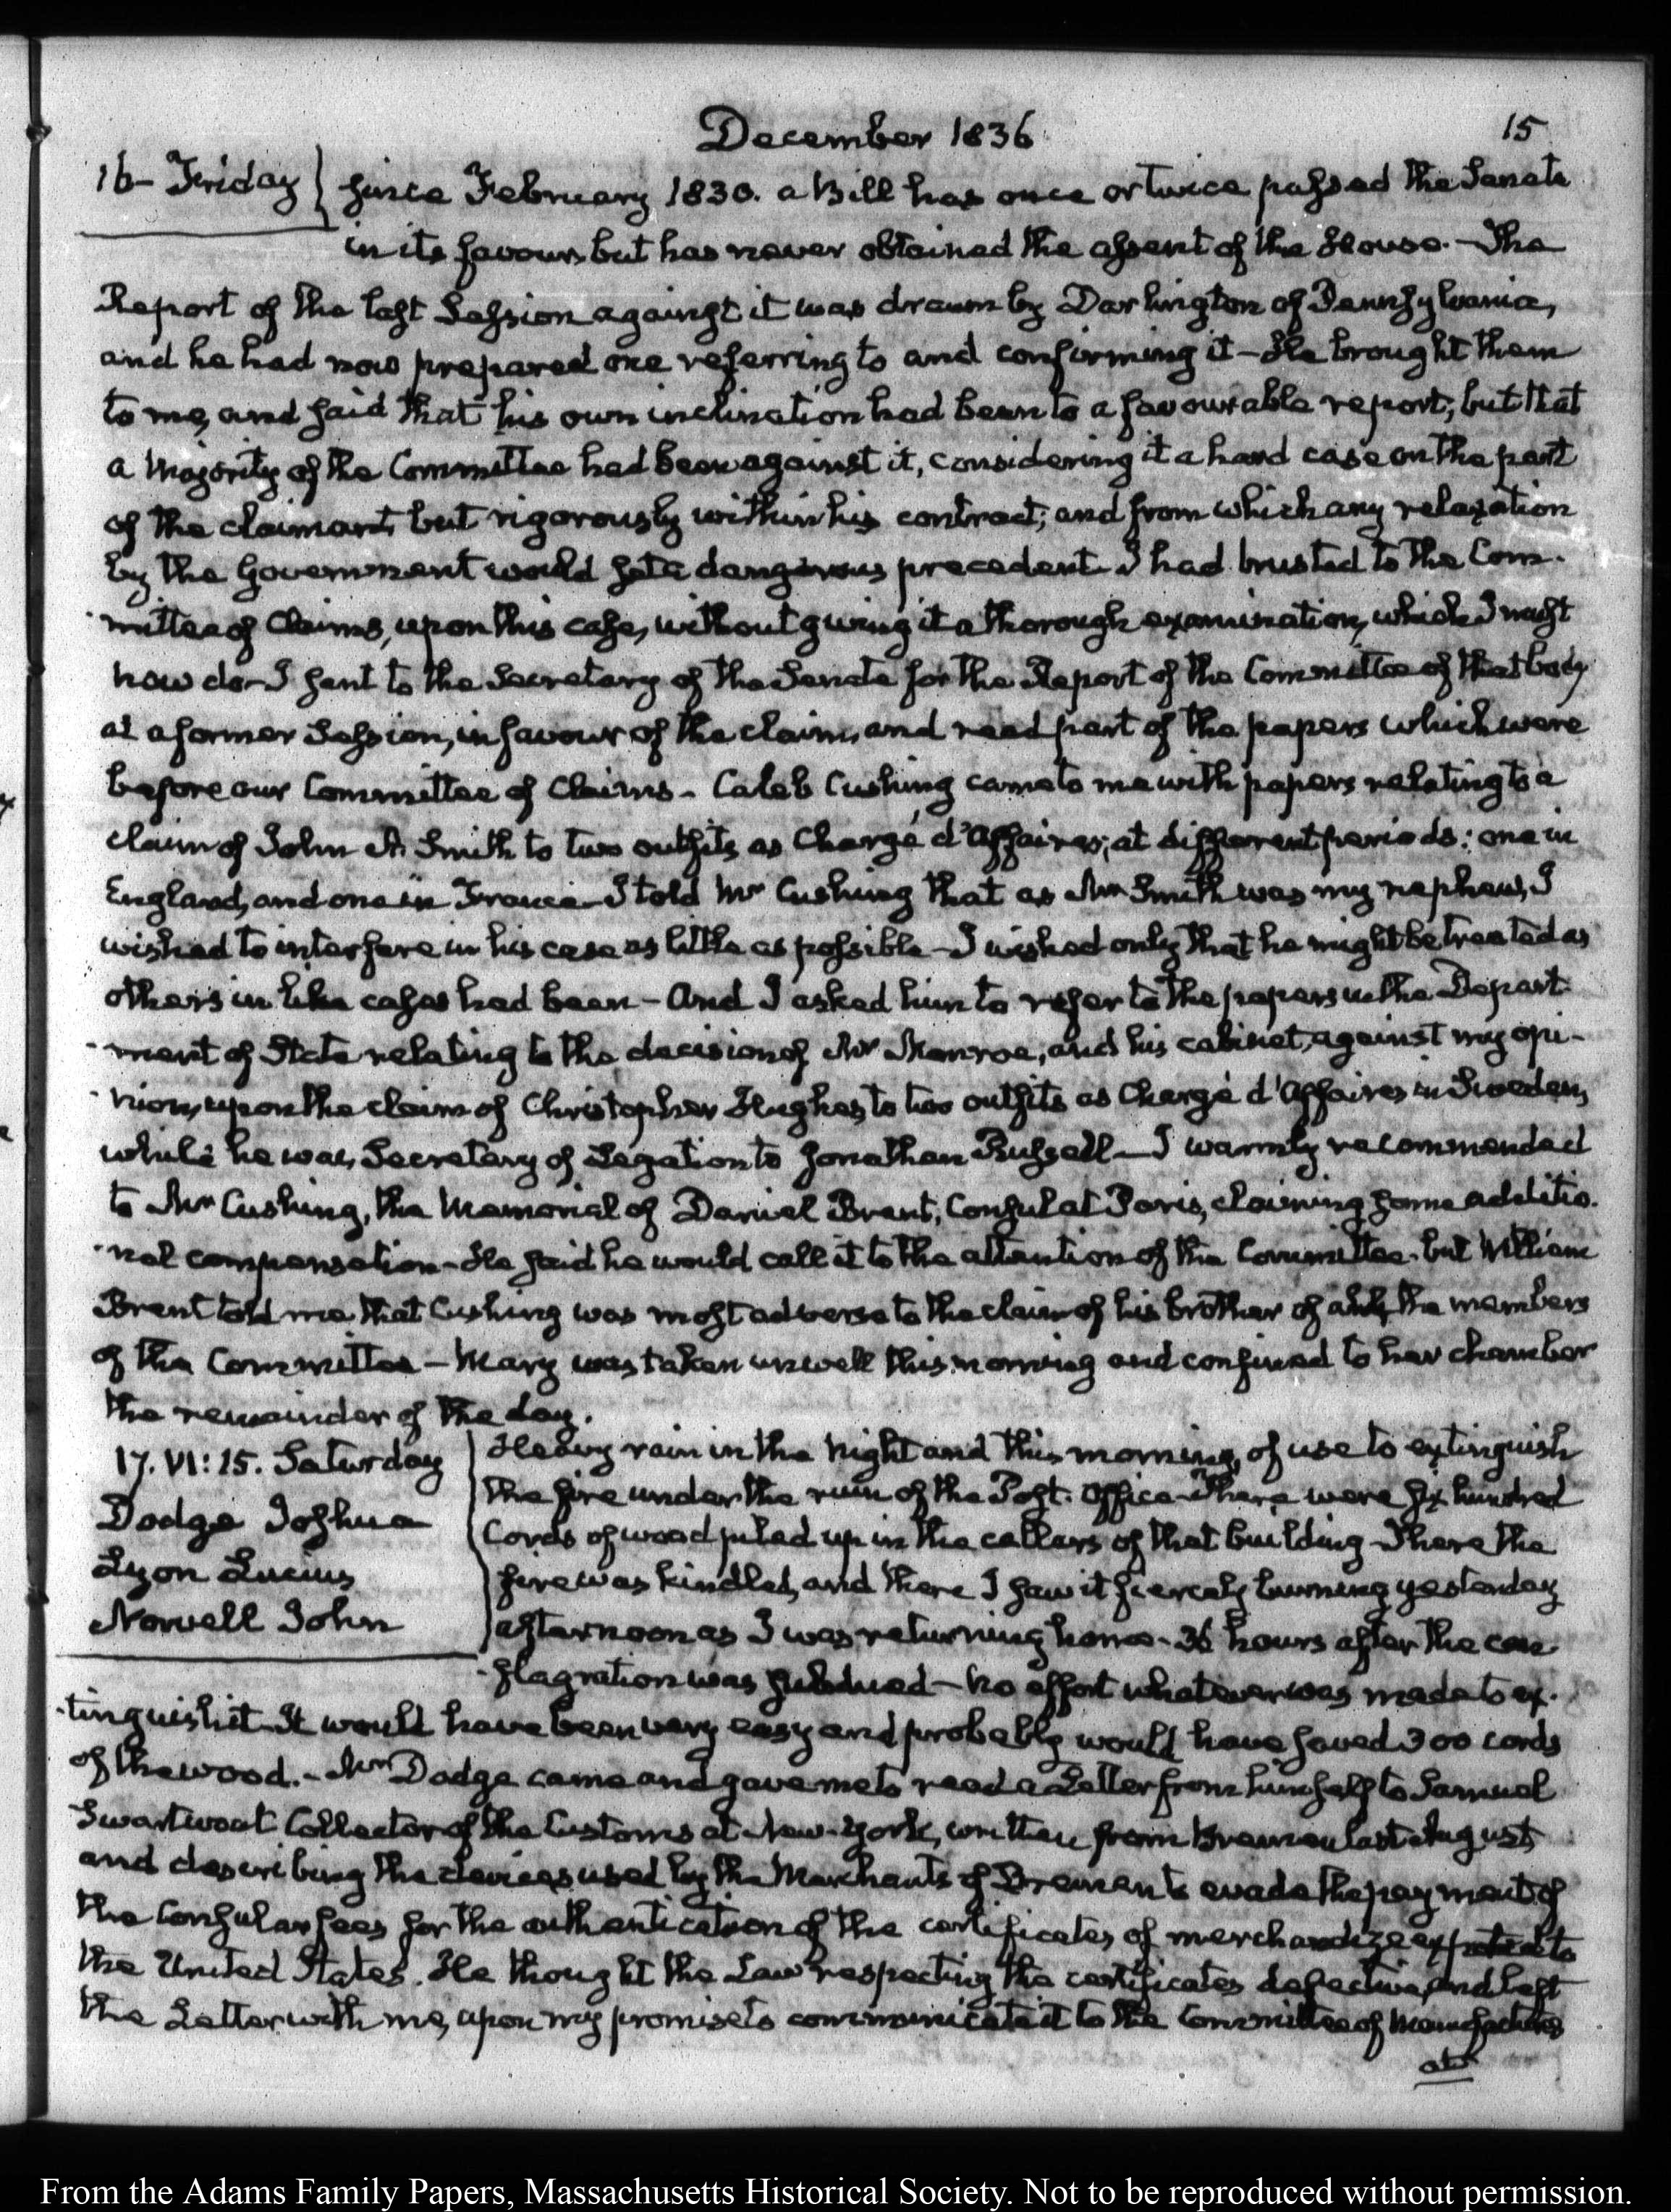 December 1836
15
16- Friday } since February 1830. a Bill has once or twice passed the Senate
in its favour, but has never obtained the assent of the House. - The
Report of the last Session against it was drawn by Darlington of Pennsylvania,
and he had now prepared one referring to and confirming it - He brought them
to me, and said that his own inclination had been to a favourable report; but that
a Majority of the Committee had been against it, considering it a hard case on the part
of the claimant, but rigorously within his contract; and from which any relaxation
by the Government would set a dangerous precedent - I had trusted to the Com-
-mittee of Claims, upon this case, without giving it a thorough examination, which I must
now do - I sent to the Secretary of the Senate for the Report of the Committee of that body
at a former Session, in favour of the claim, and read part of the papers which were
before our Committee of Claims - Caleb Cushing came to me with papers relating to a
claim of John A. Smith to two outfits as Chargé d'Affaires, at different periods: one in
England, and one in France - I told Mr Cushing that as Mr Smith was my nephew, I
wished to interfere in his case as little as possible - I wished only that he might be treated as
others in like cases had been - And I asked him to refer to the papers in the Depart-
-ment of State relating to the decision of Mr Monroe, and his cabinet, against my opi-
-nion, upon the claim of Christopher Hughes to two outfits as Chargé d'Affaires in Sweden,
while he was Secretary of Legation to Jonathan Russell - I warmly recommended
to Mr Cushing, the Memorial of Daniel Brent, Consul at Paris, claiming some additio-
-nal compensation - He said he would call it to the attention of the Committee - but William
Brent told me that Cushing was most adverse to the claim of his brother of all the members
of the Committee - Mary was taken unwell this morning and confined to her chamber
the remainder of the day.
17. VI: 15. Saturday
Dodge Joshua
Lyon Lucius
Norvell John
Heavy rain in the Night and this morning, of use to extinguish
the fire under the ruin of the Post-Office - There were six hundred
Cords of wood piled up in the cellars of that building - There the
fire was kindled, and there I saw it fiercely burning yesterday
afternoon as I was returning home - 36 hours after the con-
-flagration was subdued - No effort whatever was made to ex-
-tinguish it - It would have been very easy and probably would have saved 300 cords
of the wood. - Mr Dodge came and gave me to read a Letter from himself to Samuel
Swartwout Collector of the Customs at New-York, written from Bremen last August
and describing the devices used by the Merchants of Bremen to evade the payment of
the Consular fees for the authentication of the certificates of merchandize exported to
the United States. He thought the Law respecting the certificates defective, and left
the Letter with me, upon my promise to communicate it to the Committee of Manufactures
at
From the Adams Family Papers, Massachusetts Historical Society. Not to be reproduced without permission.